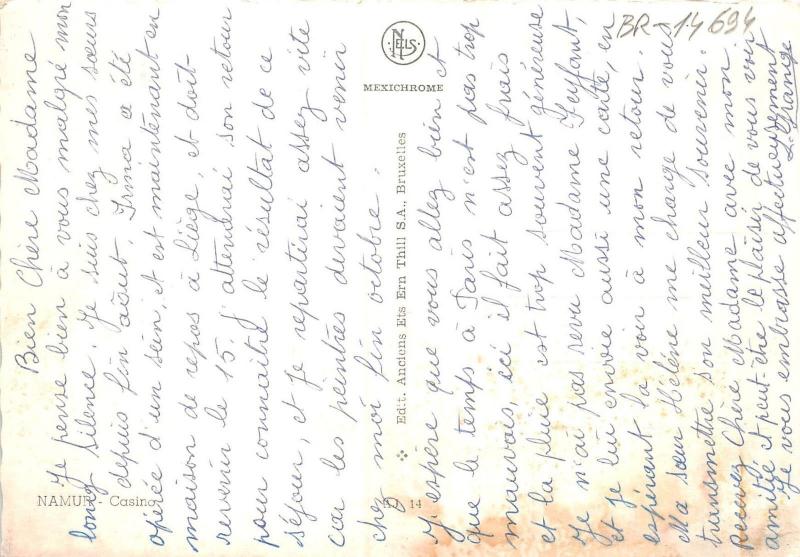 Bien Chère Madame
Je pense bien à vous malgré mon
long silence. Je suis chez mes sœurs
depuis fin août. Irma a été
opérée d'un sein, et est maintenant en
maison de repos à Liège, et doit
revenir le 15. J'attendrai son retour
pour connaître le résultat de ce
séjour, et je repartirai assez vite
car les peintres devaient venir
chez moi fin octobre.
J'espère que vous allez bien et
que le temps à Paris n'est pas trop
mauvais, ici il fait assez frais
et la pluie est trop souvent généreuse
Je n'ai pas revu Madame Feyffant,
et je lui envoie aussi une carte, en
espérant la voir à mon retour.
Ma sœur Hélène me charge de vous
transmettre son meilleur souvenir.
Recevez Chère Madame avec mon
amitié et peut-être le plaisir de vous voir
Je vous embrasse affectueusement
L. Grange
BR-14694
NELS
MEXICHROME
Edit. Anciens Ets Ern Thill S.A., Bruxelles
NAMUR - Casino
14